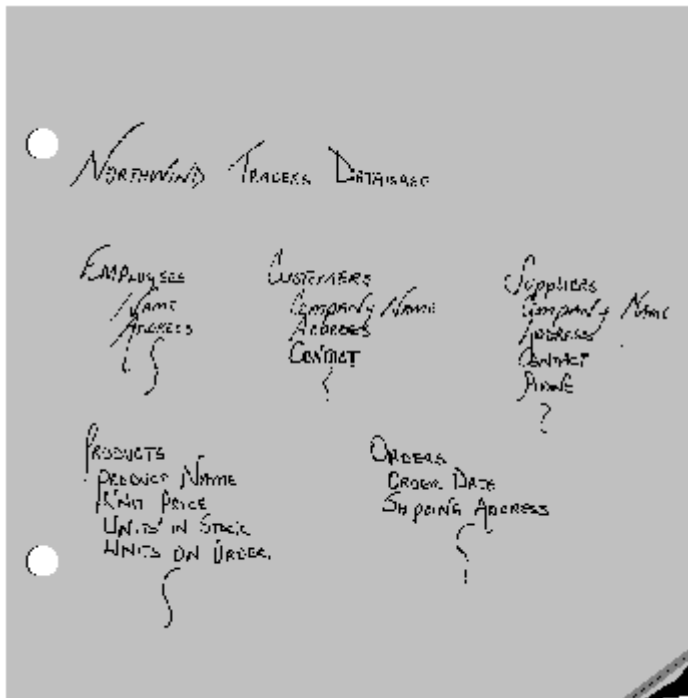 Northwind Traders Database
Employees
Name
Address
Customers
Company Name
Address
Contact
Suppliers
Company Name
Address
Contact
Phone
Products
Product Name
Unit Price
Units in Stock
Units on Order
Orders
Order Date
Shipping Address